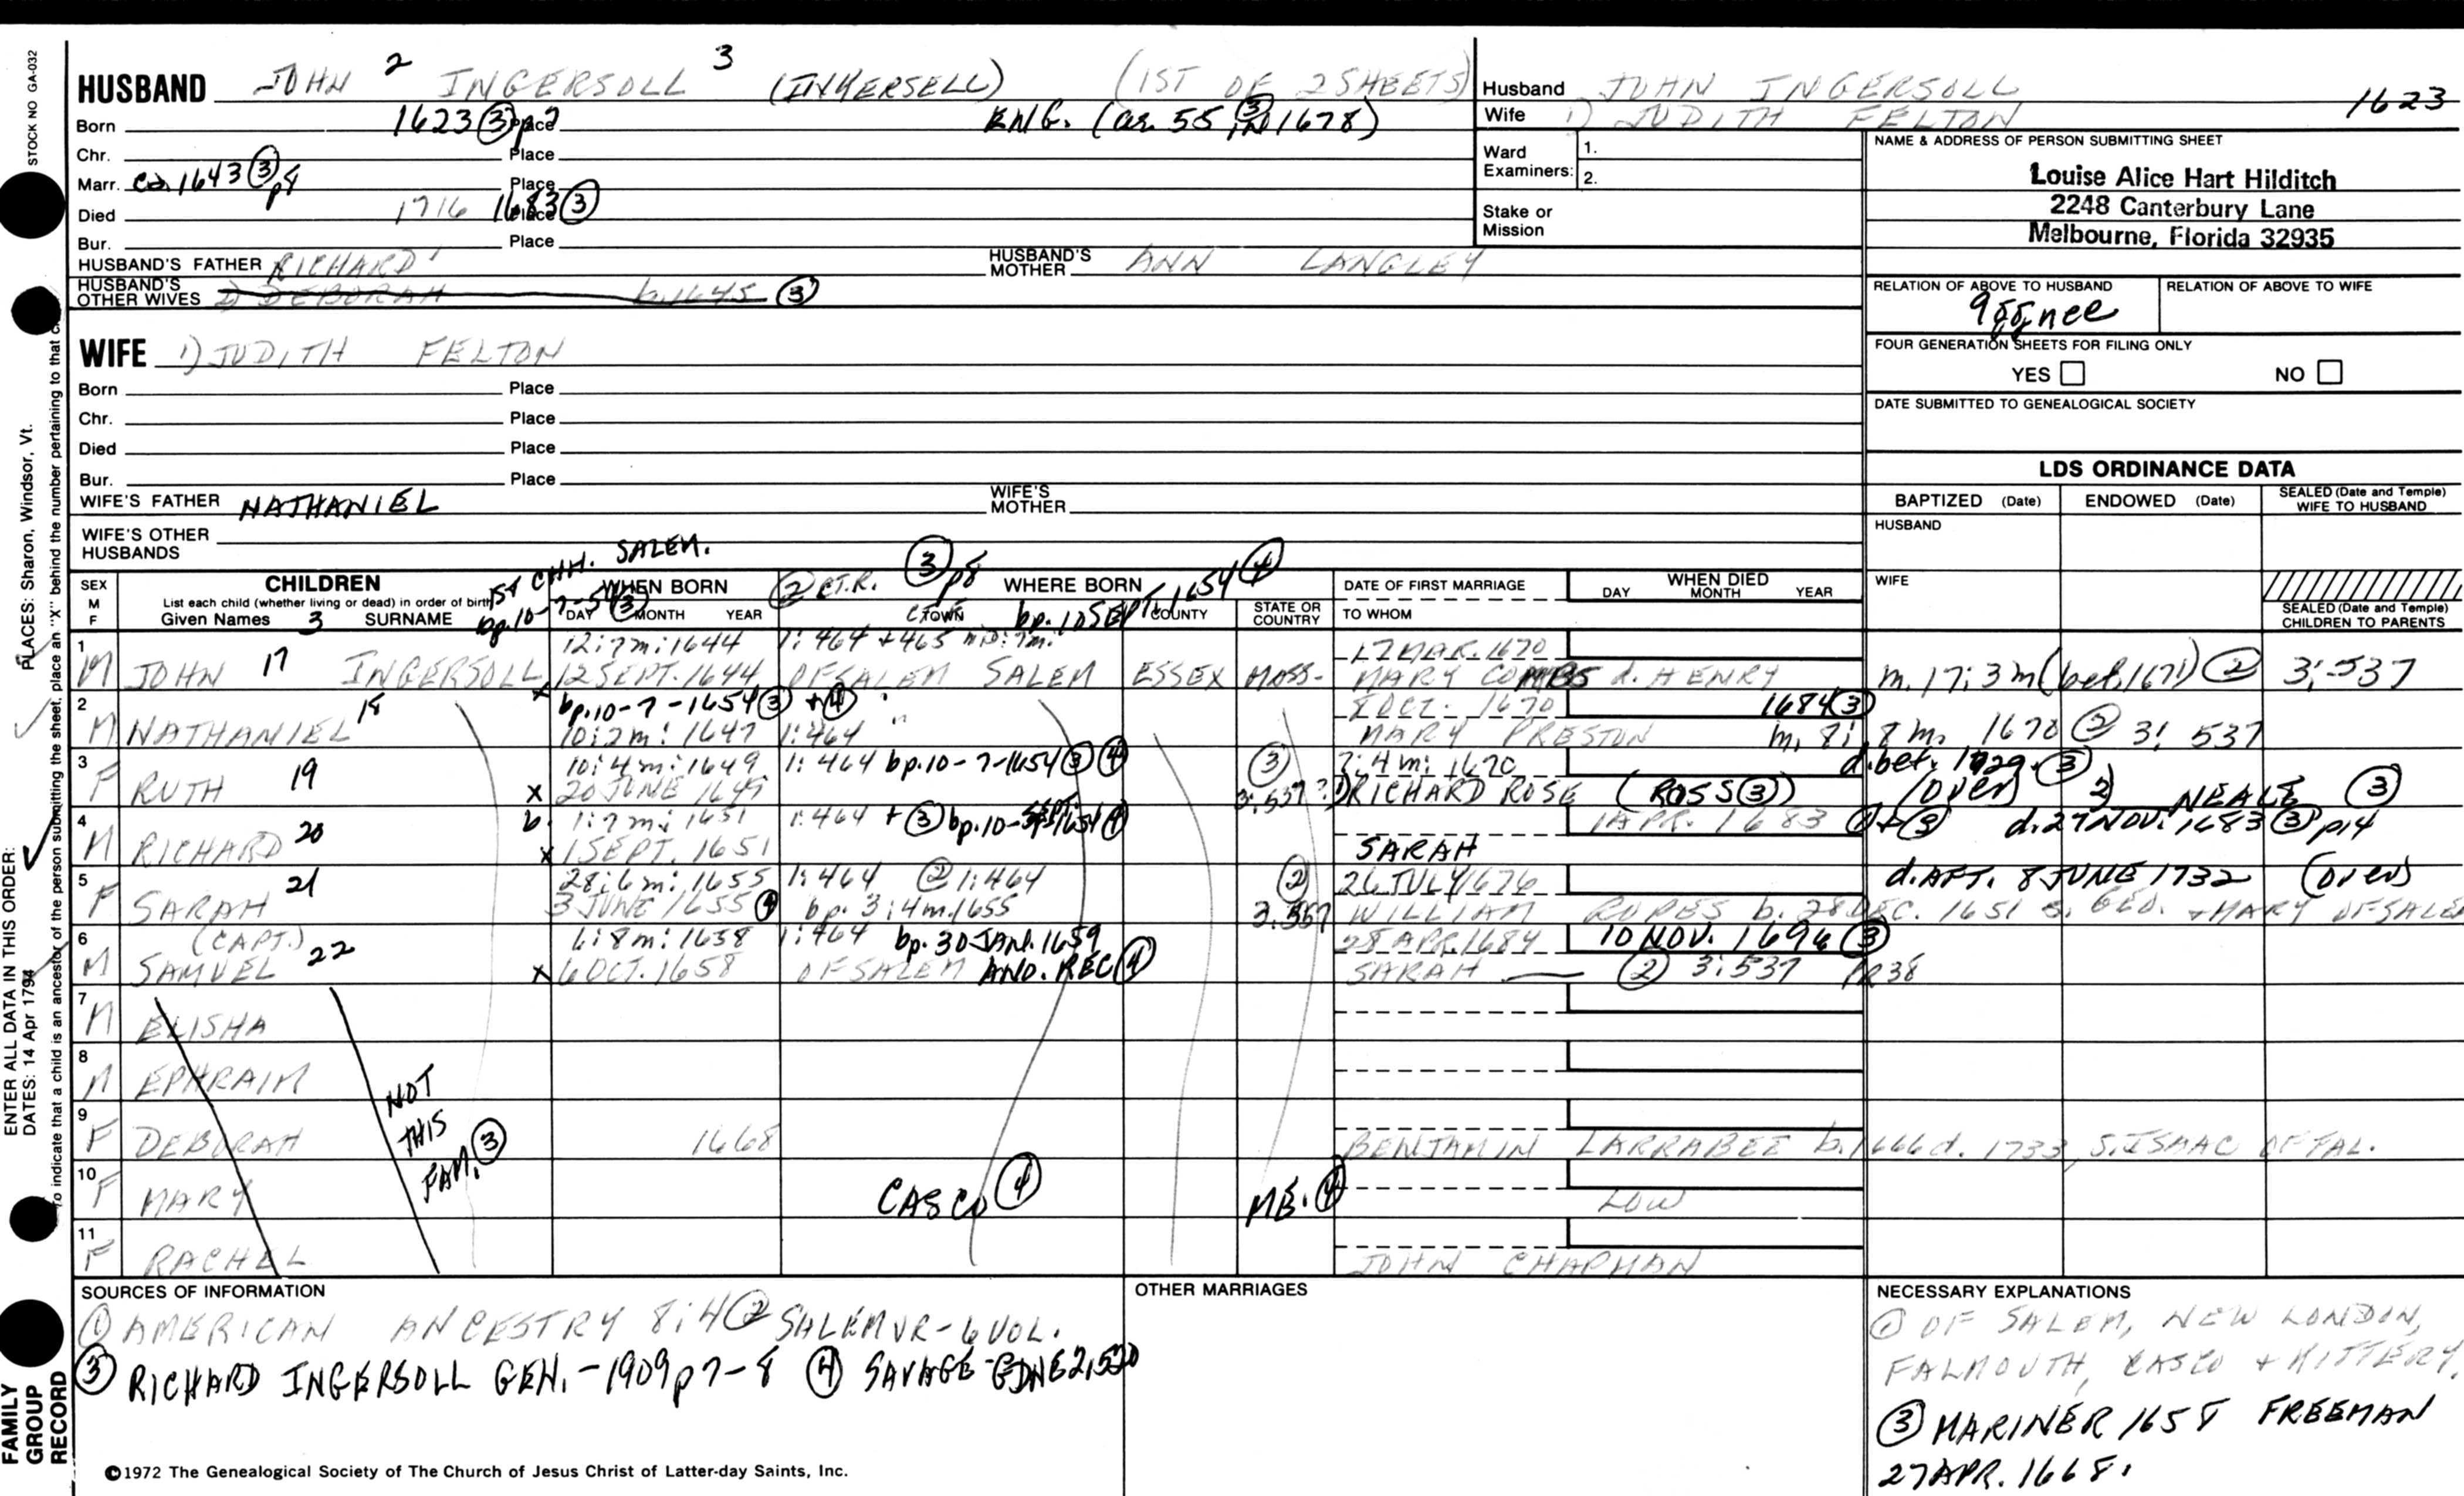 STOCK NO GA-032
PLACES: Sharon, Windsor, Vt.
ENTER ALL DATA IN THIS ORDER:
DATES: 14 Apr 1794
To indicate that a child is an ancestor of the person submitting the sheet, place an "X" behind the number pertaining to that
FAMILY GROUP RECORD
HUSBAND JOHN 2 INGERSOLL 3 (INKERSELL) (1ST OF 2 SHEETS)
Born 1623 (3) p7 Place ENG. (ae. 55 (3) IN 1678)
Chr. Place
Marr. ca. 1643 (3) p8 Place
Died 1716 1683 (3) Place
Bur. Place
HUSBAND'S FATHER RICHARD 1 HUSBAND'S MOTHER ANN LANGLEY
HUSBAND'S OTHER WIVES 2) DEBORAH b. 1645 (3)
WIFE 1) JUDITH FELTON
Born Place
Chr. Place
Died Place
Bur. Place
WIFE'S FATHER NATHANIEL WIFE'S MOTHER
WIFE'S OTHER HUSBANDS
Husband JOHN INGERSOLL 1623
Wife 1) JUDITH FELTON
Ward Examiners: 1. 2.
Stake or Mission
NAME & ADDRESS OF PERSON SUBMITTING SHEET
Louise Alice Hart Hilditch
2248 Canterbury Lane
Melbourne, Florida 32935
RELATION OF ABOVE TO HUSBAND RELATION OF ABOVE TO WIFE
FOUR GENERATION SHEETS FOR FILING ONLY
YES NO
DATE SUBMITTED TO GENEALOGICAL SOCIETY
LDS ORDINANCE DATA
BAPTIZED (Date) ENDOWED (Date) SEALED (Date and Temple) WIFE TO HUSBAND
HUSBAND
WIFE
SEALED (Date and Temple) CHILDREN TO PARENTS
1ST CHH. SALEM.
bp. 10-7-54 (3)
(2) CT.R. (3) p8
bp. 10 SEPT. 1654 (4)
SEX M F
CHILDREN
List each child (whether living or dead) in order of birth
Given Names 3 SURNAME
WHEN BORN
DAY MONTH YEAR
WHERE BORN
TOWN COUNTY STATE OR COUNTRY
DATE OF FIRST MARRIAGE
TO WHOM
WHEN DIED
DAY MONTH YEAR
1 12:7m:1644 1:464 + 465 17 MAR. 1670
M JOHN 17 INGERSOLL 12 SEPT. 1644 OF SALEM SALEM ESSEX MASS- MARY COMBS d. HENRY m. 17:3m (bet. 1671) (2) 3:537
2 bp. 10-7-1654 (3) + (4) 8 OCT. 1670 1684 (3)
M NATHANIEL 18 10:2m:1647 1:464 " MARY PRESTON m. 8: 8m. 1670 (2) 3:537
3 10:4m:1649 1:464 bp. 10-7-1654 (3) (4) (3) 2:4m:1670 d. bet. 1729. (3)
F RUTH 19 X 20 JUNE 1649 3:537 ? 1) RICHARD ROSE (ROSS (3)) (over) 2) NEALE (3)
4 b. 1:7m:1651 1:464 + (3) bp. 10-SEPT. 1654 (4) 1 APR. 1683 d. 27 NOV. 1683 (3) p14
M RICHARD 20 X 1 SEPT. 1651 SARAH
5 28:6m:1655 1:464 (2) 1:464 (2) 26 JULY 1676 d. AFT. 8 JUNE 1732 (over)
F SARAH 21 3 JUNE 1655 (4) bp. 3:4m.1655 3.557 WILLIAM ROPES b. 28 DEC. 1651 s. GEO. + MARY OF SALEM
6 (CAPT.) 6:8m:1658 1:464 bp. 30 JAN. 1659 28 APR. 1684 10 NOV. 1696 (3)
M SAMUEL 22 X 6 OCT. 1658 OF SALEM AND. REC (4) SARAH (2) 3:537 PR 38
7 M ELISHA
8 M EPHRAIM
NOT THIS FAM. (3)
9 F DEBORAH 1668 BENJAMIN LARRABEE b. 1666 d. 1733, S. ISAAC OF FAL.
10 F MARY CASCO (4) ME. (4) LOW
11 F RACHEL JOHN CHAPMAN
SOURCES OF INFORMATION
(1) AMERICAN ANCESTRY 8:4 (2) SALEM VR - 6 VOL.
(3) RICHARD INGERSOLL GEN. - 1909 p7-8 (4) SAVAGE - GDNE 2,520
OTHER MARRIAGES
NECESSARY EXPLANATIONS
(1) OF SALEM, NEW LONDON,
FALMOUTH, CASCO + KITTERY.
(3) MARINER 1658 FREEMAN
27 APR. 1668.
©1972 The Genealogical Society of The Church of Jesus Christ of Latter-day Saints, Inc.